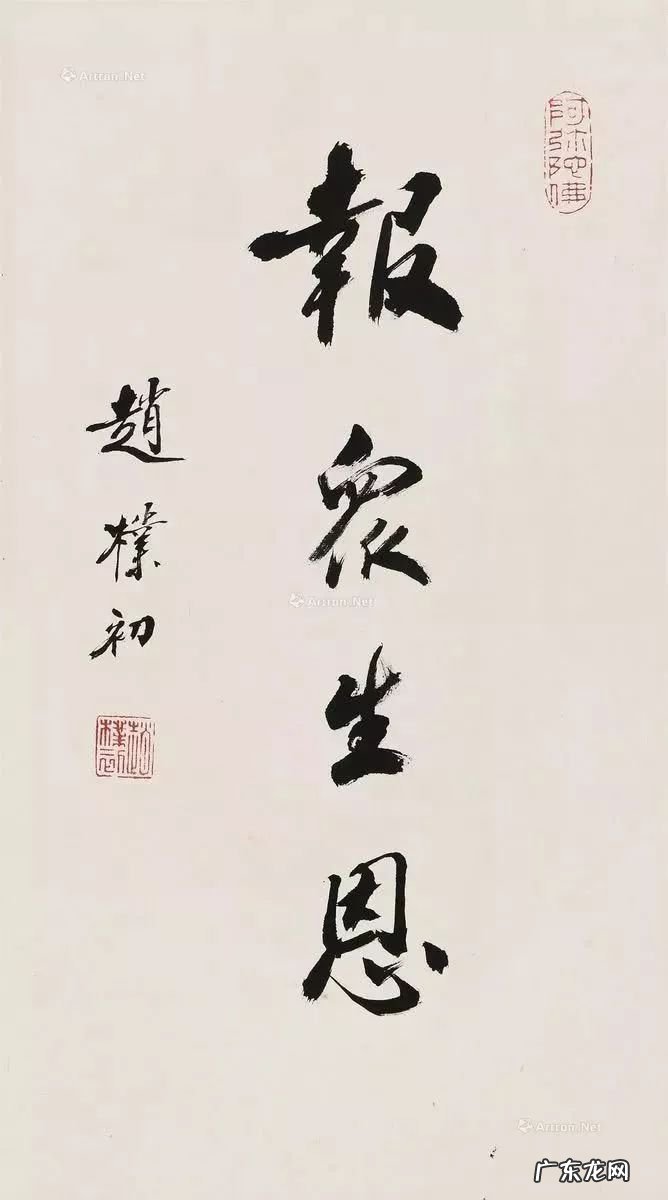 阿弥陀佛
報眾生恩
趙樸初
趙樸初
Artron.Net
Artron.Net
Artron.Net
广东龙网